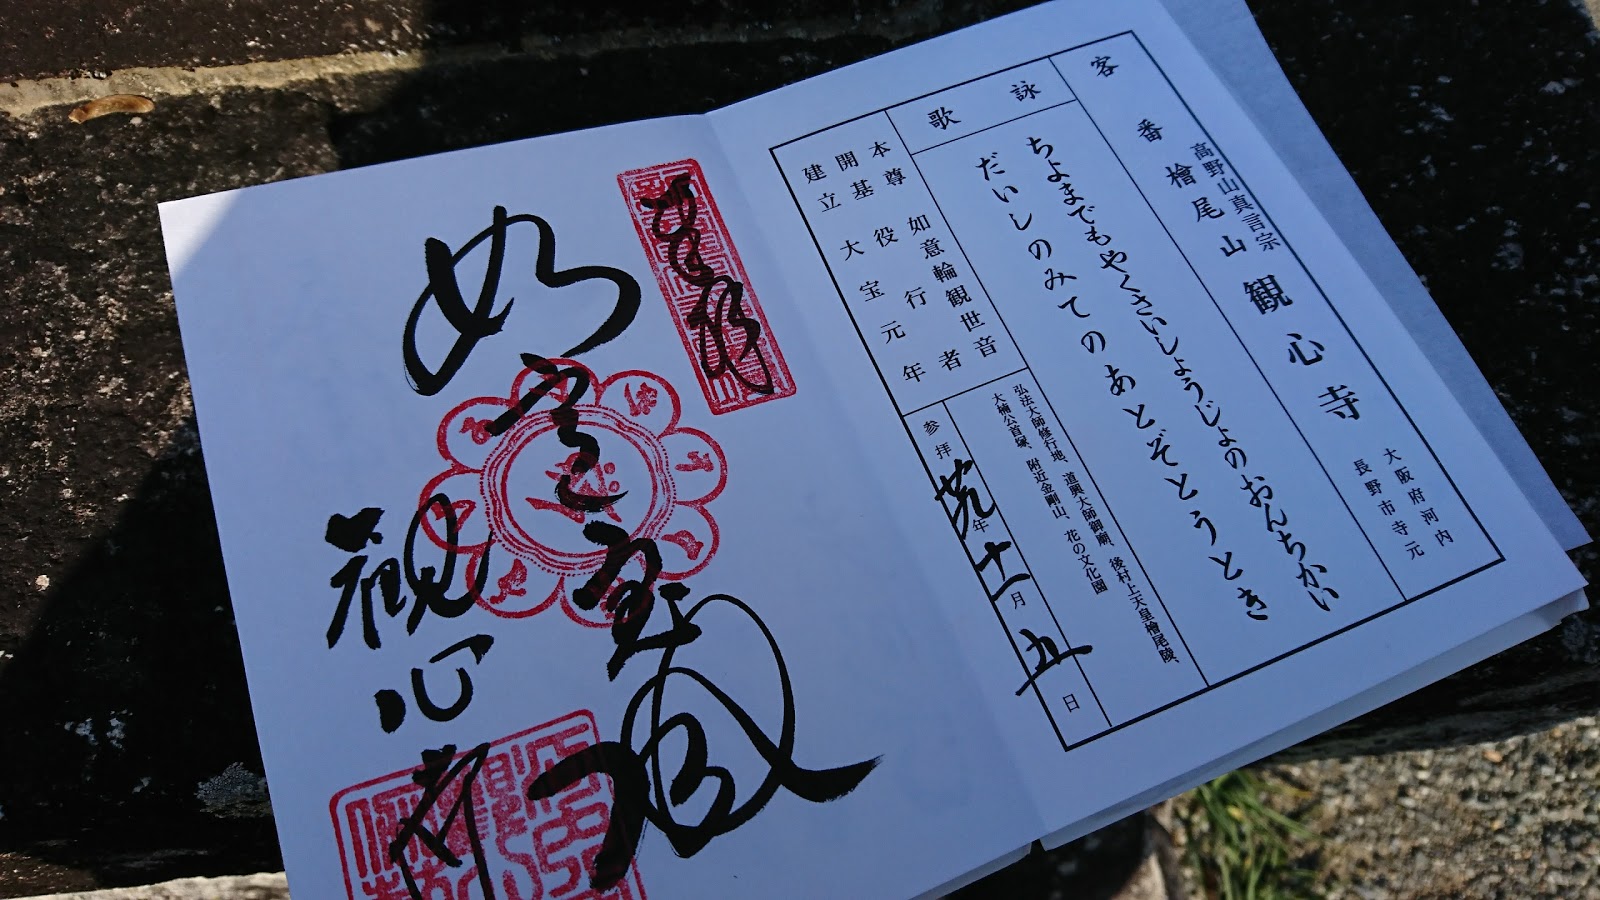 客番
高野山真言宗
檜尾山 観心寺
大阪府河内
長野市寺元
詠歌
ちよまでもやくさいしょうじょのおんちかい
だいしのみてのあとぞとうとき
本尊 如意輪観世音
開基 役行者
建立 大宝元年
弘法大師修行地、道興大師御廟、後村上天皇檜尾陵、
大楠公首塚、附近金剛山、花の文化園
参拝 年十一月五日
観心寺